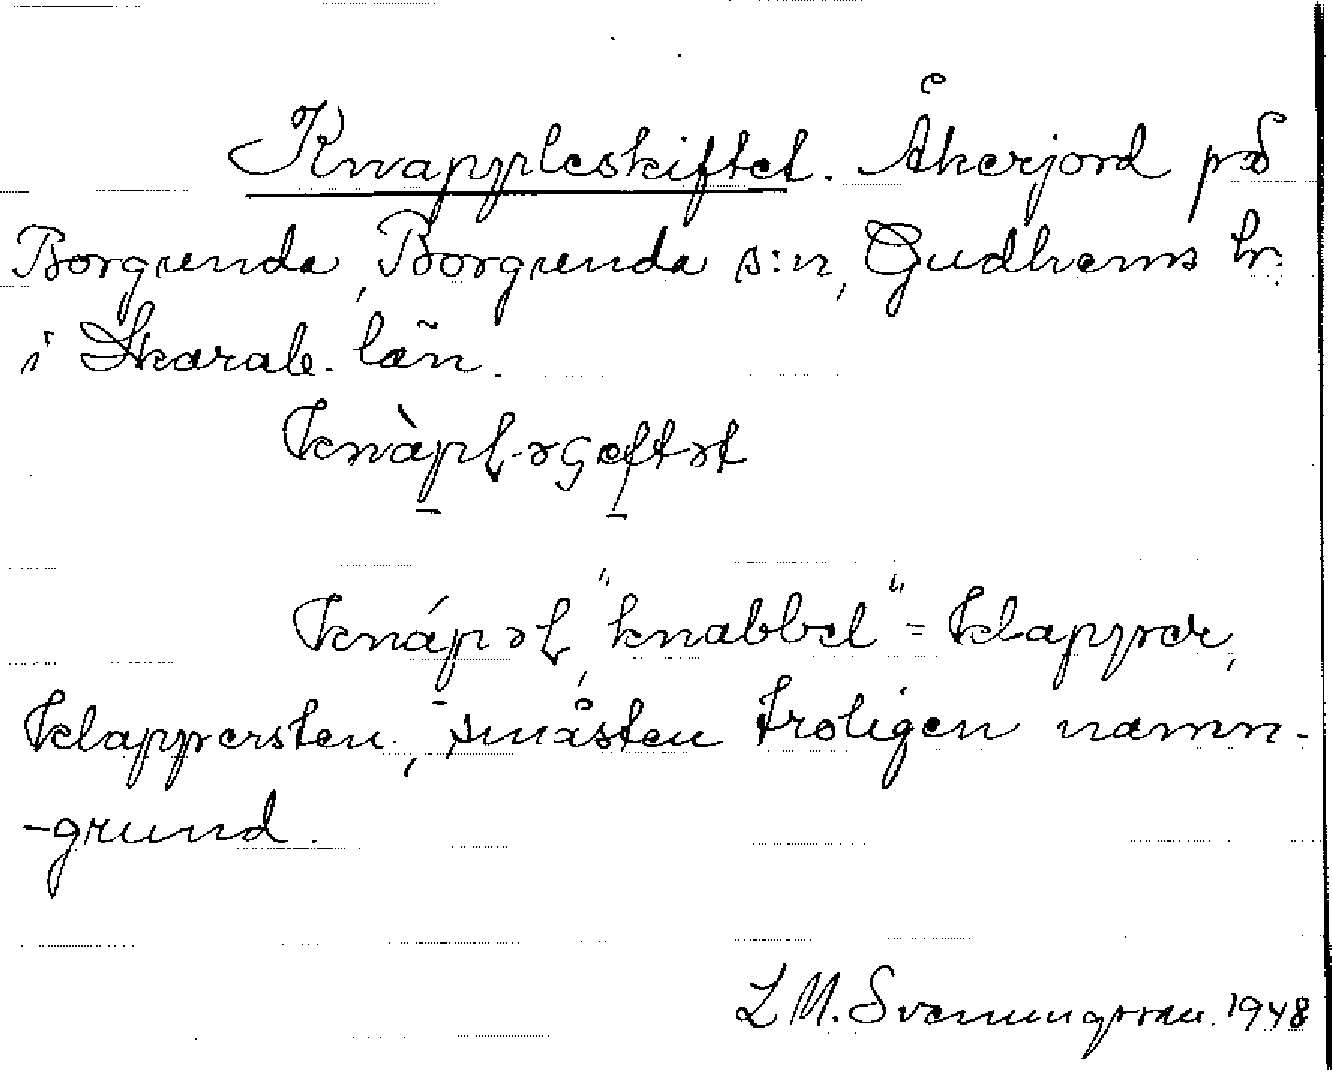 Knappleskiftet. Åkerjord på
Borgunda, Borgunda s:n, Gudhems hr.
i Skarab. län.
knàpl-əʃeftət
knápəl, "knabbel" = klapper,
klappersten, småsten troligen namn-
-grund.
L M. Svenungsson. 1948